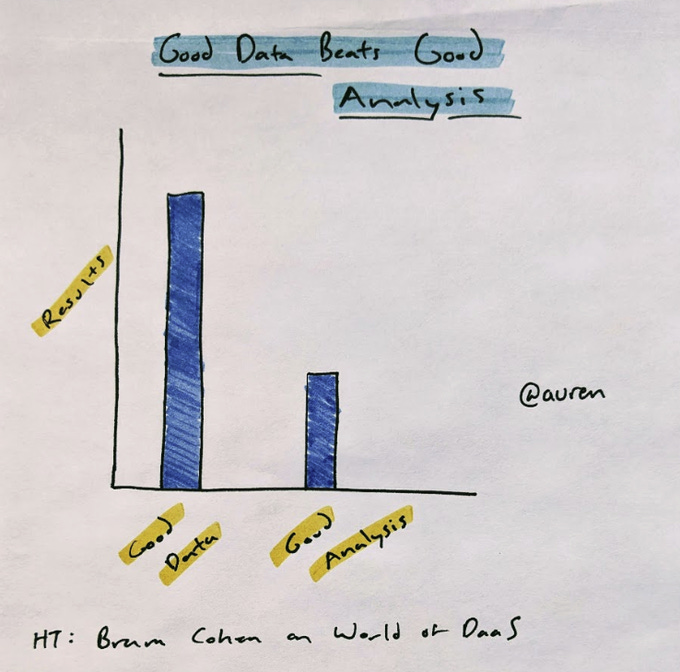 Good Data Beats Good
Analysis
Results
@auren
Good
Data
Good
Analysis
HT: Bram Cohen on World of DaaS